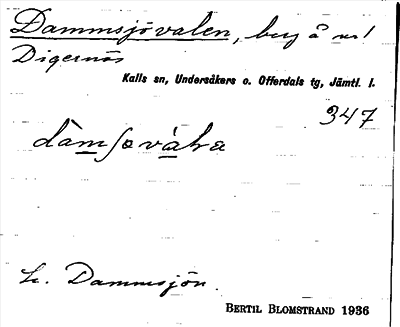 Dammsjövalen, berg å nr 1
Digernäs
Kalls sn, Undersåkers o. Offerdals tg, Jämtl. l.
347
dàmʃøvàlæ
h. Dammsjön.
BERTIL BLOMSTRAND 1936